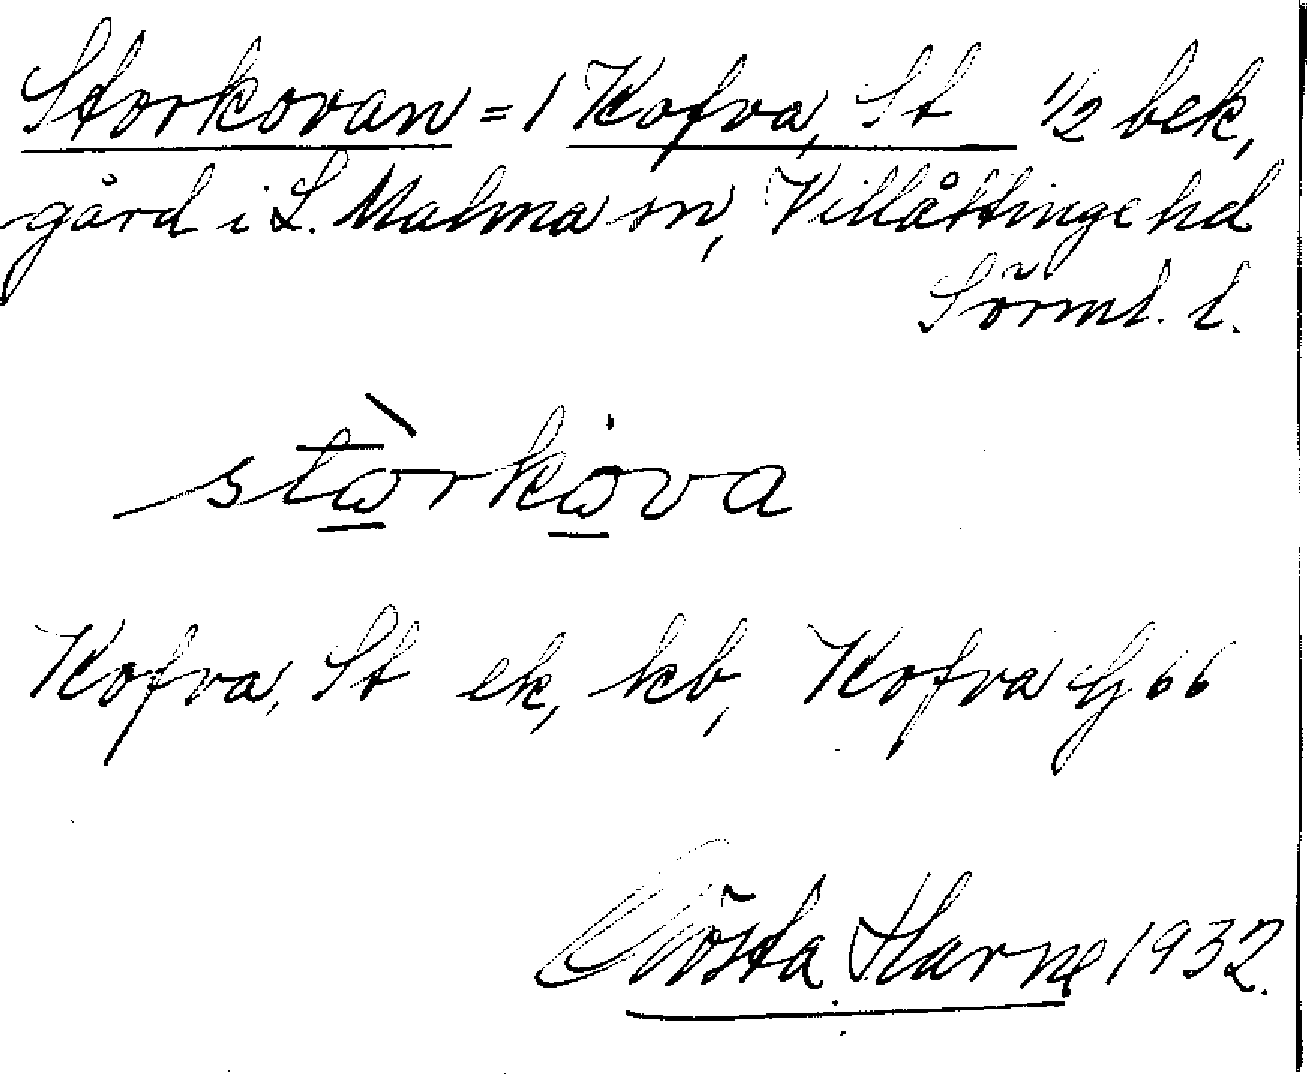 Storkovan = 1 Kofva, St 1/2 bek,
gård i L. Malma sn, Villåttinge hd
Sörml. l.
stὼrkω̇va
Kofva, St ek, kb, Kofva G 66
Gösta Harne 1932.